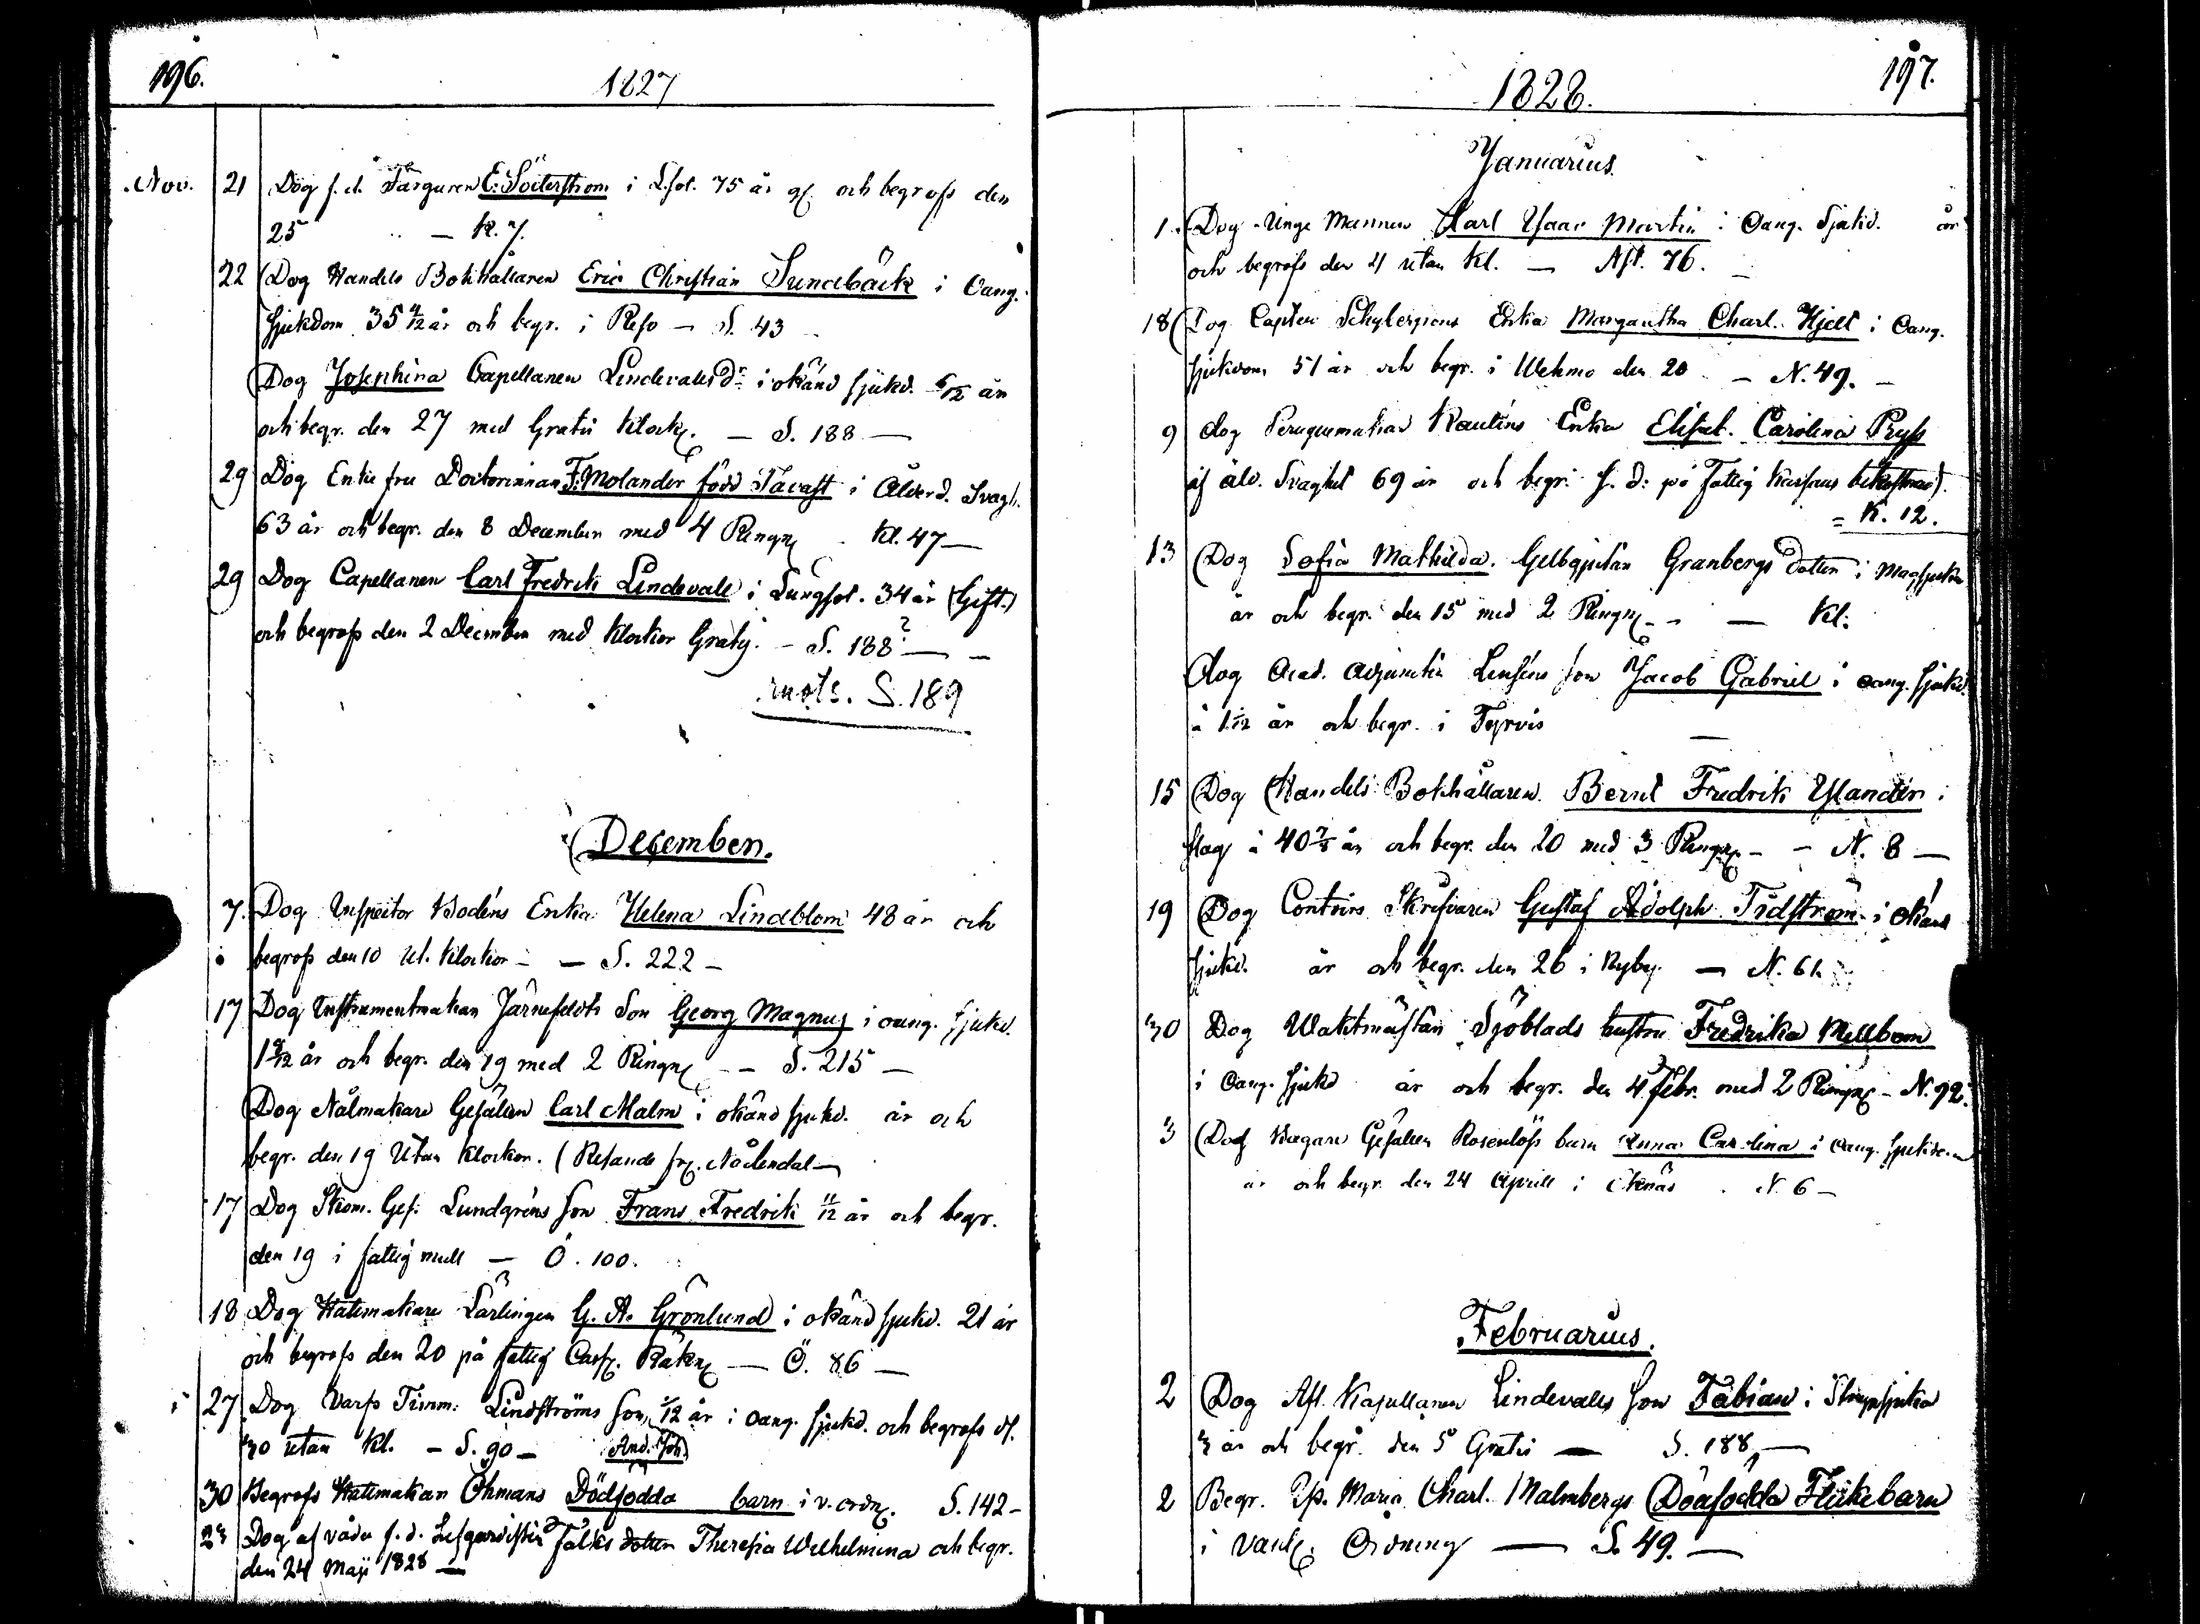 196.
1827
Nov. 21 Dog f.d. Färguren E. Söderstrom i L.sot. 75 år g. och begrofs den
25 — K. 7.
22 Dog Handels Bokhållaren Eric Christian Sundbäck i Oang.
sjukdom 35 4/12 år och begr. i Reso — S. 43
Dog Josephina Capellanen Lindevalls dr i okänd sjukd. 6/12 år
och begr. den 27 med Gratis Klock. — S. 188 —
29 Dog Enke fru Doctorinnan F. Molander född Tavast i Ålderd. Svagh.
63 år och begr. den 8 December med 4 Ringn. Kl. 47 —
29 Dog Capellanen Carl Fredrik Lindevall i Lungsot. 34 år (Gift.)
och begrofs den 2 December med Klockor Gratis. — S. 188? —
S. 189
December.
7. Dog Inspector Bodéns Enka Helena Lindblom 48 år och
begrofs den 10 Ut. Klockor — — S. 222 —
17 Dog Instrumentmakan Järnefeldts Son Georg Magnus i oang. sjukd.
1 9/12 år och begr. den 19 med 2 Ringn. — — S. 215 —
Dog Nålmakare Gesällen Carl Malm i okänd sjukd. år och
begr. den 19 Utan Klockor. (Resande fr. Nådendal —
17 Dog Skom. Ges. Lundgréns Son Frans Fredrik 11/12 år och begr.
den 19 i fattig mull — Ö. 100.
18 Dog Hattmakare Lärlingen G. A. Grönlund i okänd sjukd. 21 år
och begrofs den 20 på fattig Cass. Räkn. — Ö. 86 —
27 Dog Varfs Timm. Lindströms Son, 1/12 år i oang. sjukd. och begrofs d.
30 utan Kl. — S. 90 — And. Joh.
30 Begrofs Hattmakan Öhmans Dödfödda barn i v. ordn. S. 142 —
23 Dog af våda f.d. Lifgardisten Falks dotter Theresia Wilhelmina och begr.
den 24 Maji 1828 —
197.
1828.
Januarius.
1. Dog Unge Mannen Karl Isaac Martin i Oang. Sjukd. år
och begrofs den 4 utan Kl. — Aft. 76. —
18 Dog Capten Schybergsons Enka Margaretha Charl. Hjelt i Oang.
sjukdom 51 år och begr. i Wehmo den 20 — N. 49. —
9 dog Peruquemakar Rautins Enka Elisab. Carolina Pryss
af åld. Svaghet 69 år och begr. s. d. på Fattig Kassans bekostnad.
= K. 12.
13 Dog Sofia Mathilda. Gelbgjutan Granbergs dotter i Magsjukan
år och begr. den 15 med 2 Ringn. — — Kl:
dog Acad. Adjuncten Lenséns son Jacob Gabriel i oang. sjukd.
à 1 1/12 år och begr. i Tyrvis —
15 Dog Handels Bokhållaren Bernt Fredrik Ylander i
slag à 40 7/8 år och begr. den 20 med 3 Ringn. — — N. 8 —
19 Dog Contoirs Skrifvaren Gustaf Adolph Tidström i okänd
sjukd. år och begr. den 26 i Nyby. — N. 61.
30 Dog Waktmästan Sjöblads hustru Fredrika Mellbom
i oang. sjukd år och begr. den 4 Febr. med 2 Ringn. — N. 92.
3 Dog Bagare Gesällen Rosenlöfs barn Anna Carolina i oang. sjukdom
år och begr. den 24 April i Ekenäs N. 6 —
Februarius.
2 Dog Afl. Kapellanen Lindevalls Son Fabian i Strypsjuka
3 år och begr. den 5 Gratis — S. 188, —
2 Begr. Pp. Maria Charl. Malmbergs Dödfödda Flickebarn
i vanl. Ordning — S. 49. —